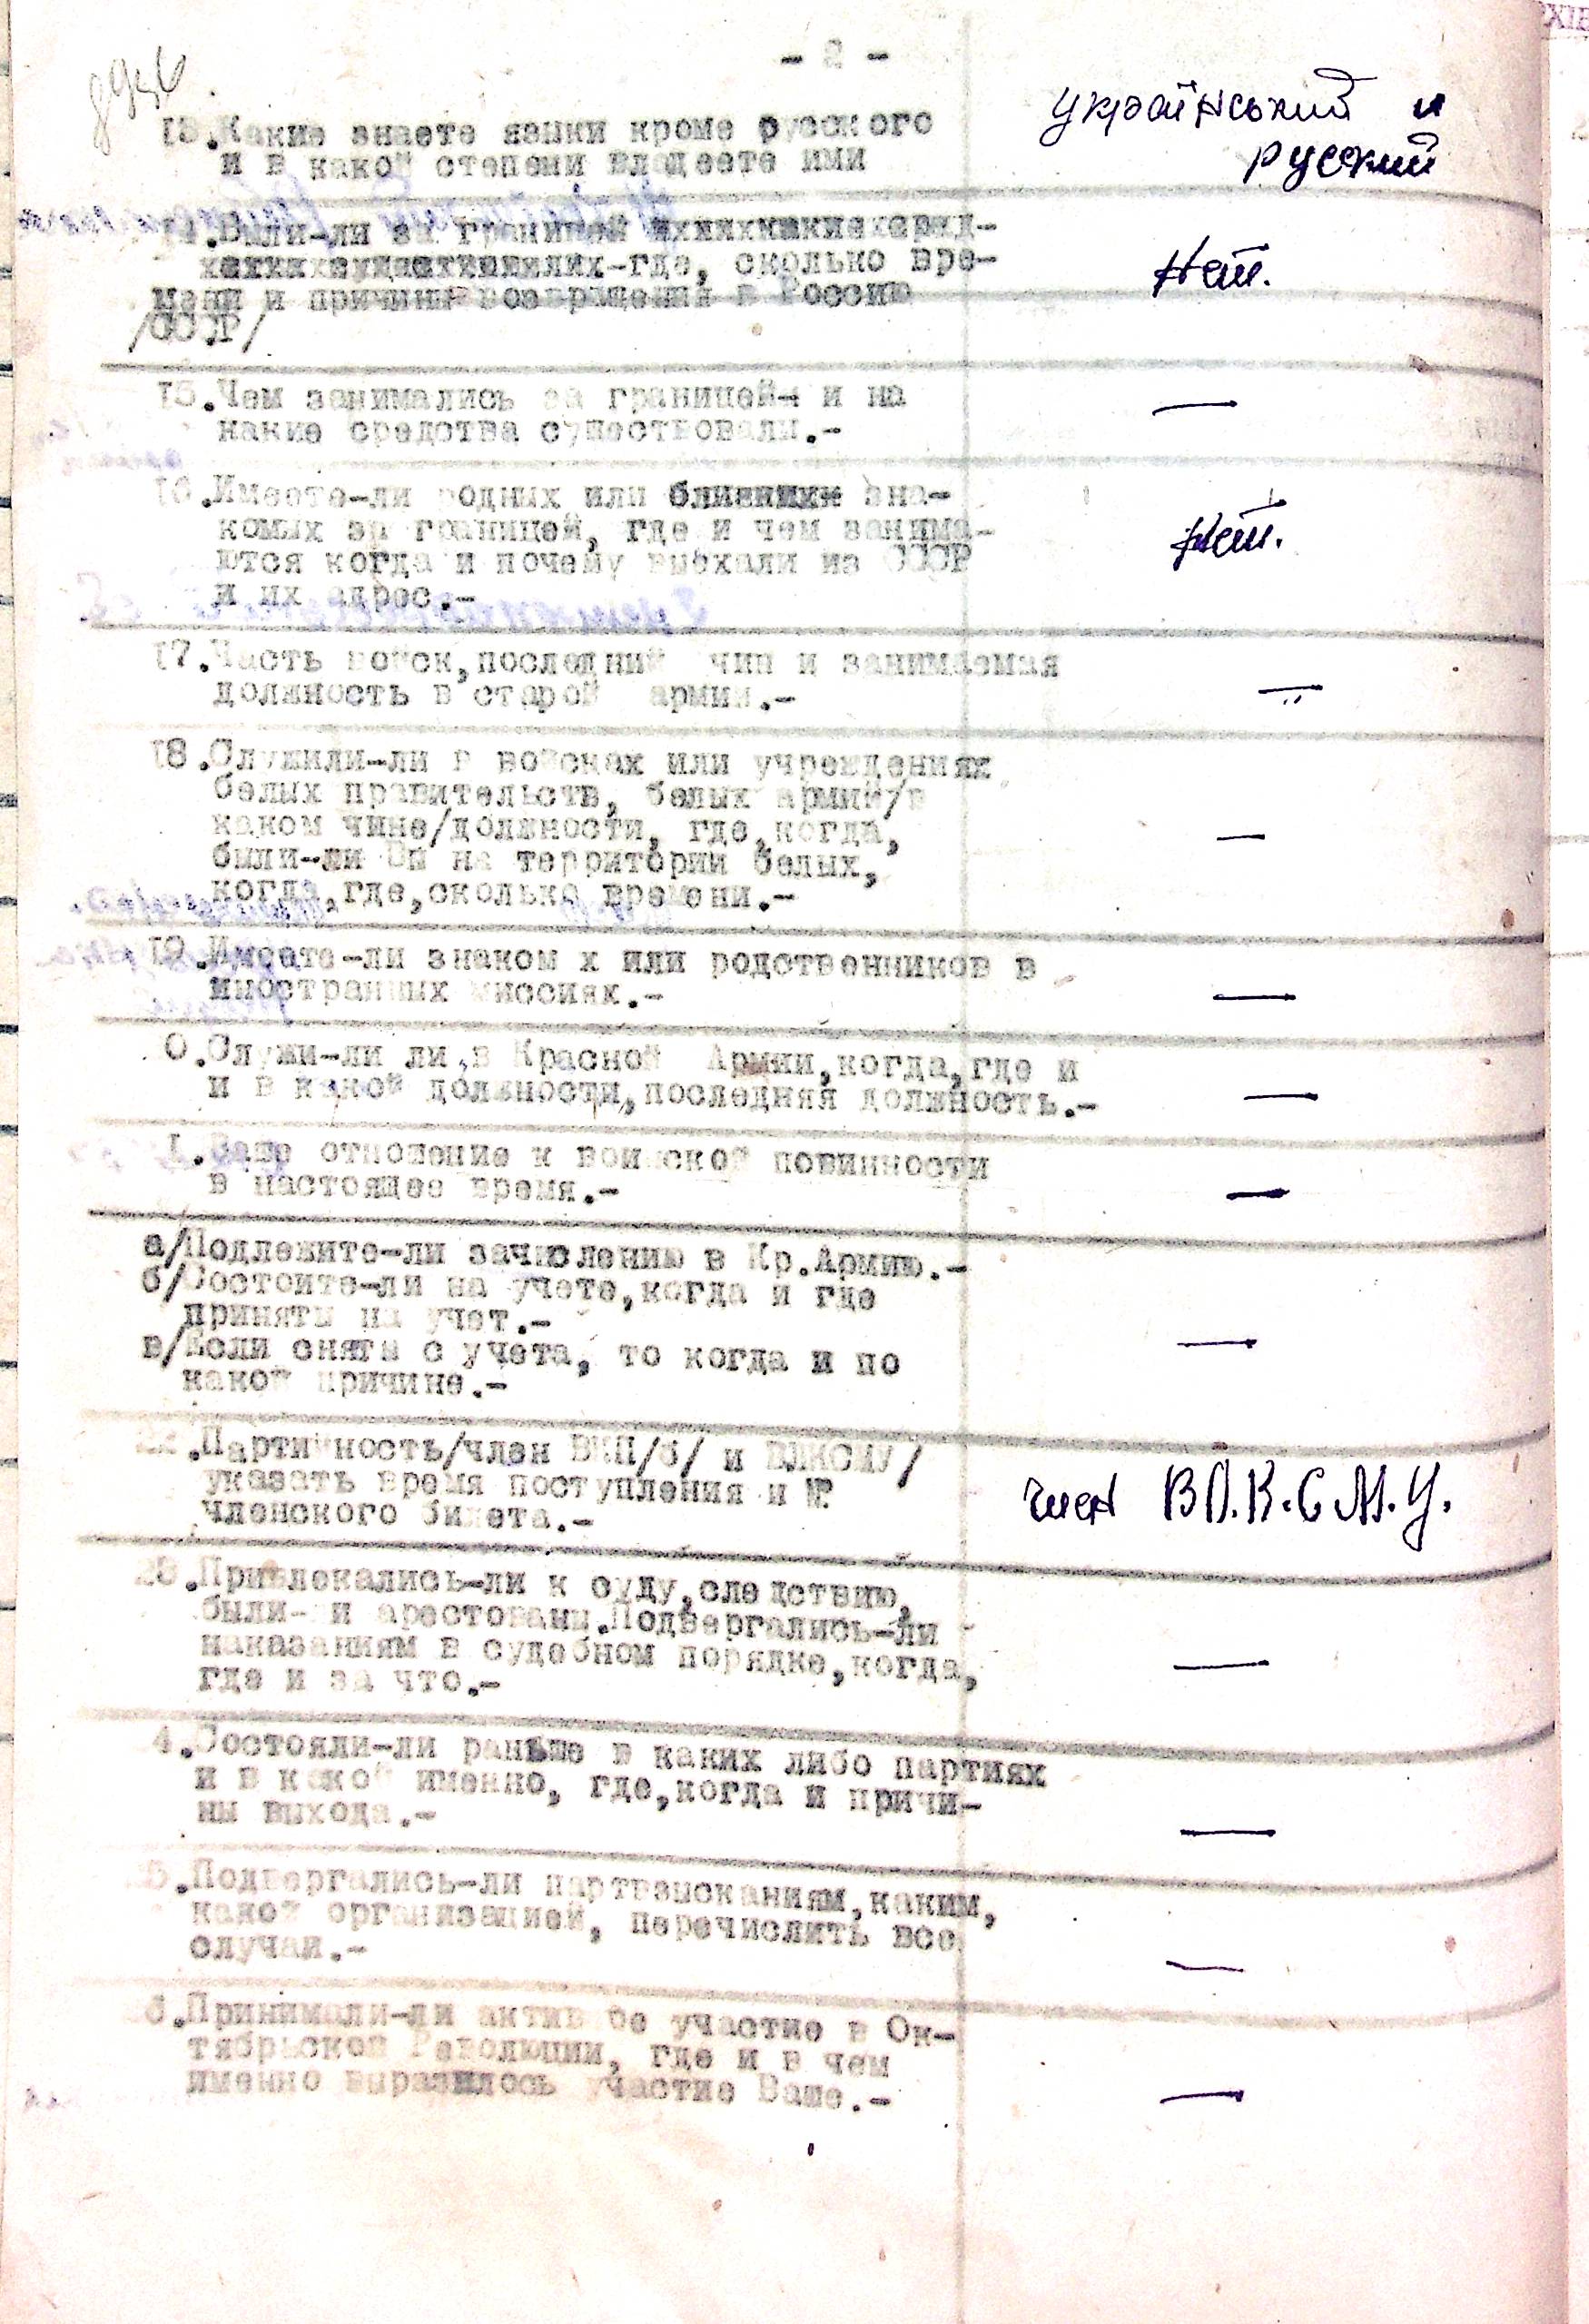 - 2 -
13.Какие знаете языки кроме русского
и в какой степени владеете ими
український и
русский
14.Были-ли за границей
-где, сколько вре-
мени и причины возвращения в Россию
/СССР/
Нет.
15.Чем занимались за границей и на
какие средства существовали.-
—
16.Имеете-ли родных или близких зна-
комых за границей, где и чем занима-
ются когда и почему выехали из СССР
и их адрес.-
Нет.
17.Часть войск,последний чин и занимаемая
должность в старой армии.-
—
18.Служили-ли в войсках или учреждениях
белых правительств, белых армий/в
каком чине/должности, где,когда,
были-ли Вы на территории белых,
когда,где,сколько времени.-
—
19.Имеете-ли знаком х или родственников в
иностранных миссиях.-
—
0.Служи-ли ли в Красной Армии,когда,где и
и в какой должности,последняя должность.-
—
1.Ваше отношение к воинской повинности
в настоящее время.-
—
а/Подлежите-ли зачислению в Кр.Армию.-
б/Состоите-ли на учете,когда и где
приняты на учет.-
в/Если сняты с учета, то когда и по
какой причине.-
—
22.Партийность/член ВКП/б/ и ВЛКСМУ/
указать время поступления и №
членского билета.-
член В Л.К.С.М.У.
23.Привлекались-ли к суду,следствию,
были-ли арестованы.Подвергались-ли
наказаниям в судебном порядке,когда,
где и за что.-
—
4.Состояли-ли раньше в каких либо партиях
и в какой именно, где,когда и причи-
ны выхода.-
—
5.Подвергались-ли партвзысканиям,каким,
какой организацией, перечислить все
случаи.-
—
6.Принимали-ли активное участие в Ок-
тябрьской Революции, где и в чем
именно выразилось участие Ваше.-
—